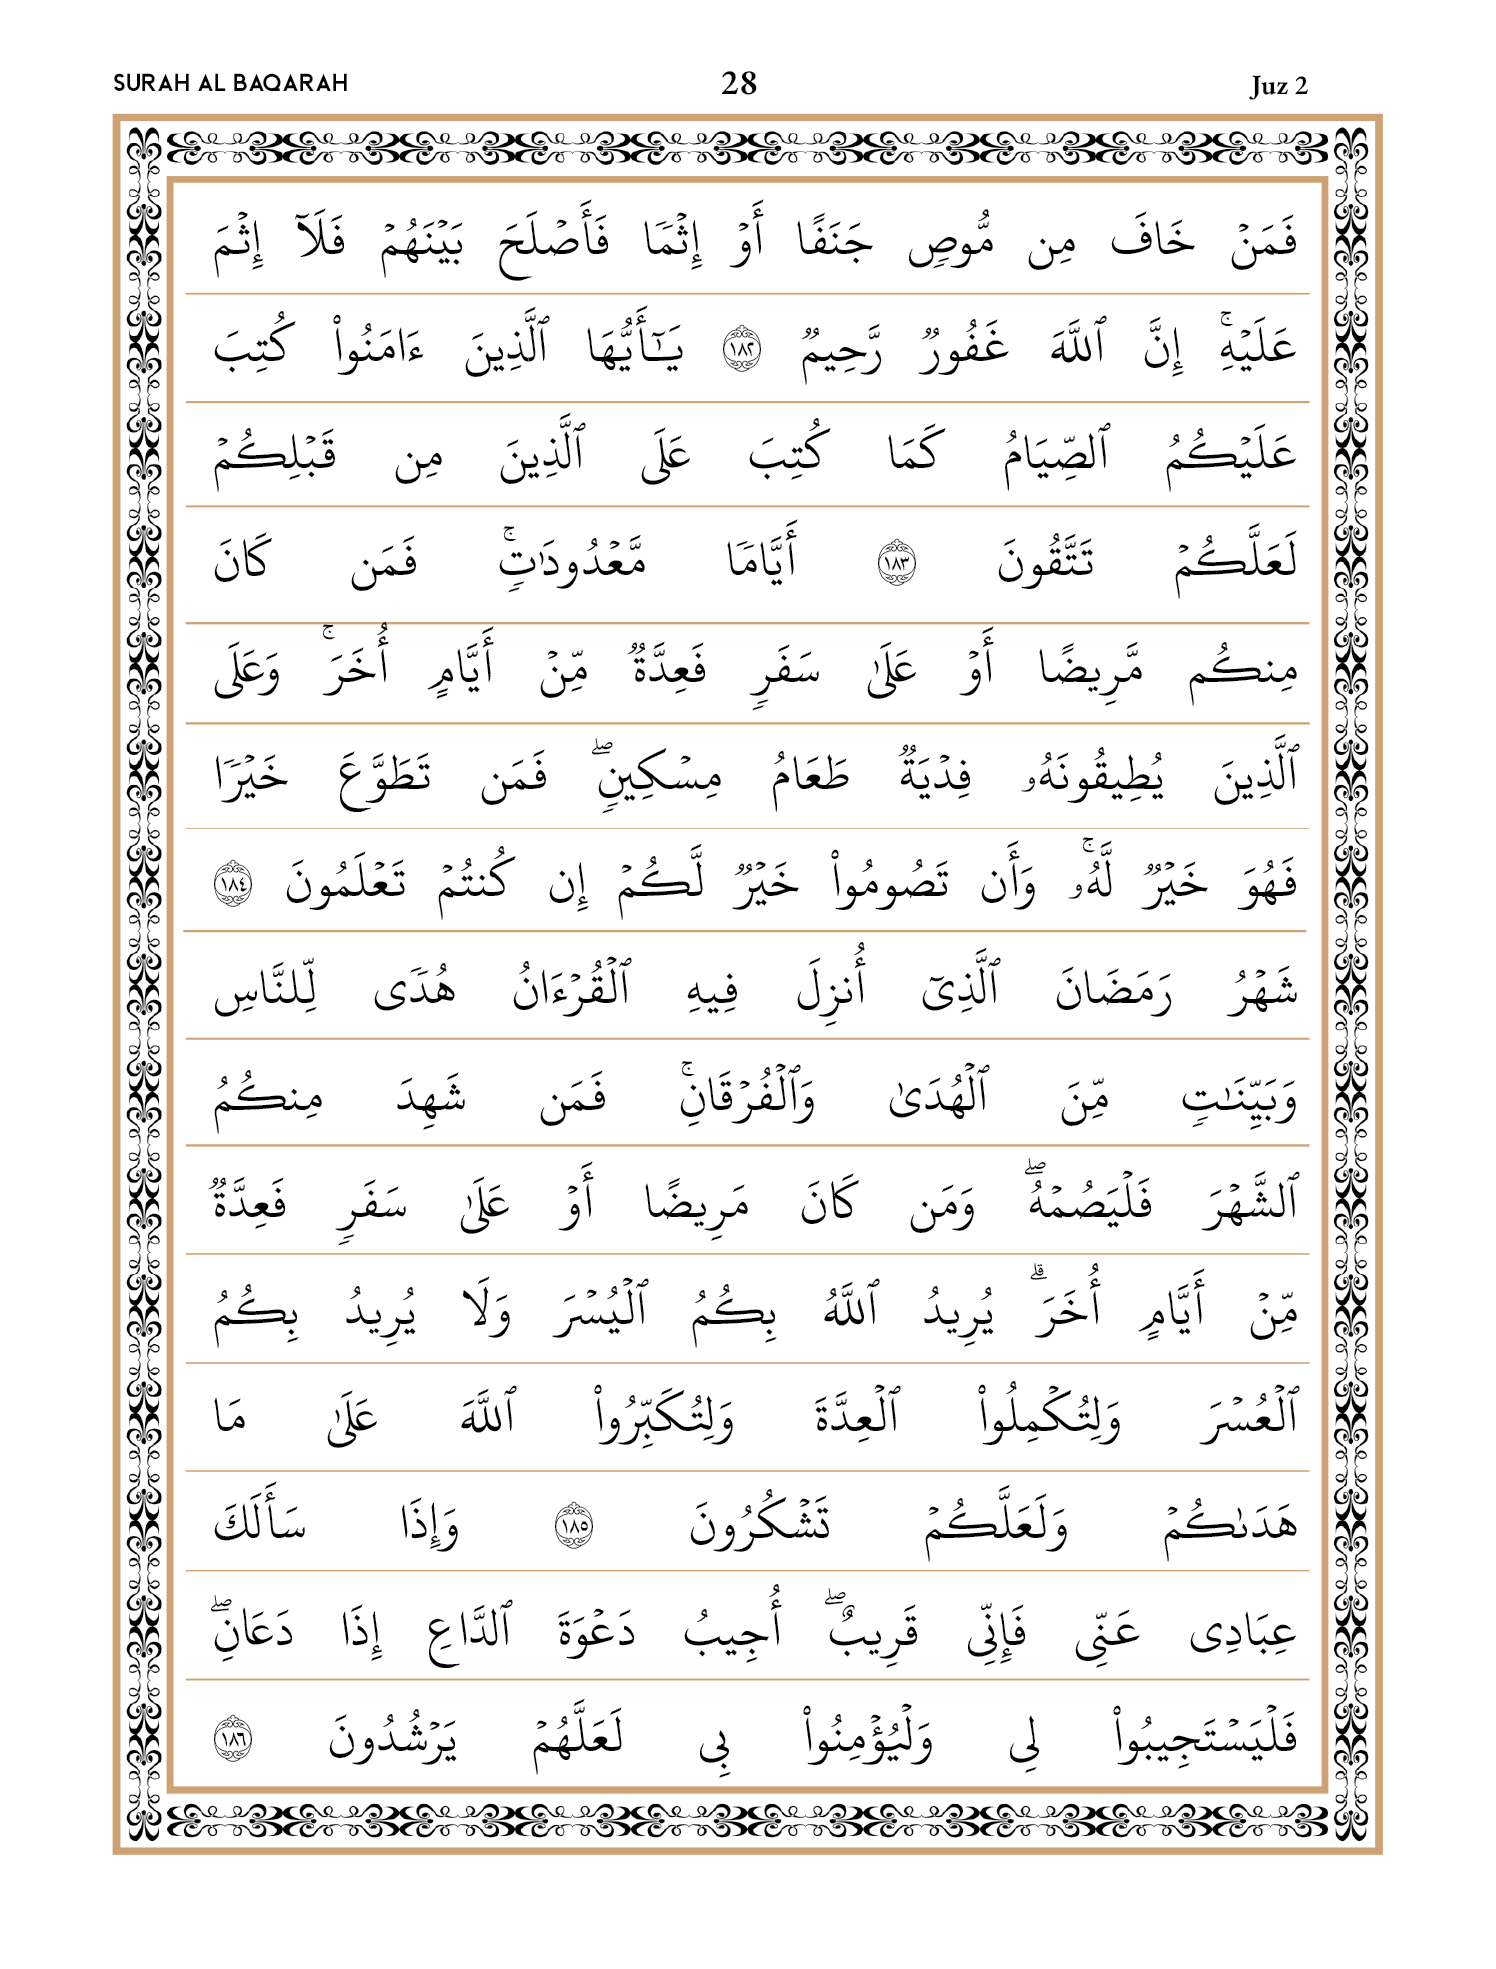 SURAH AL BAQARAH 28 Juz 2
فَمَنۡ خَافَ مِن مُّوصٖ جَنَفًا أَوۡ إِثۡمٗا فَأَصۡلَحَ بَيۡنَهُمۡ فَلَآ إِثۡمَ
عَلَيۡهِۚ إِنَّ ٱللَّهَ غَفُورٞ رَّحِيمٞ ١٨٢ يَٰٓأَيُّهَا ٱلَّذِينَ ءَامَنُواْ كُتِبَ
عَلَيۡكُمُ ٱلصِّيَامُ كَمَا كُتِبَ عَلَى ٱلَّذِينَ مِن قَبۡلِكُمۡ
لَعَلَّكُمۡ تَتَّقُونَ ١٨٣ أَيَّامٗا مَّعۡدُودَٰتٖۚ فَمَن كَانَ
مِنكُم مَّرِيضًا أَوۡ عَلَىٰ سَفَرٖ فَعِدَّةٞ مِّنۡ أَيَّامٍ أُخَرَۚ وَعَلَى
ٱلَّذِينَ يُطِيقُونَهُۥ فِدۡيَةٞ طَعَامُ مِسۡكِينٖۖ فَمَن تَطَوَّعَ خَيۡرٗا
فَهُوَ خَيۡرٞ لَّهُۥۚ وَأَن تَصُومُواْ خَيۡرٞ لَّكُمۡ إِن كُنتُمۡ تَعۡلَمُونَ ١٨٤
شَهۡرُ رَمَضَانَ ٱلَّذِيٓ أُنزِلَ فِيهِ ٱلۡقُرۡءَانُ هُدٗى لِّلنَّاسِ
وَبَيِّنَٰتٖ مِّنَ ٱلۡهُدَىٰ وَٱلۡفُرۡقَانِۚ فَمَن شَهِدَ مِنكُمُ
ٱلشَّهۡرَ فَلۡيَصُمۡهُۖ وَمَن كَانَ مَرِيضًا أَوۡ عَلَىٰ سَفَرٖ فَعِدَّةٞ
مِّنۡ أَيَّامٍ أُخَرَۗ يُرِيدُ ٱللَّهُ بِكُمُ ٱلۡيُسۡرَ وَلَا يُرِيدُ بِكُمُ
ٱلۡعُسۡرَ وَلِتُكۡمِلُواْ ٱلۡعِدَّةَ وَلِتُكَبِّرُواْ ٱللَّهَ عَلَىٰ مَا
هَدَىٰكُمۡ وَلَعَلَّكُمۡ تَشۡكُرُونَ ١٨٥ وَإِذَا سَأَلَكَ
عِبَادِي عَنِّي فَإِنِّي قَرِيبٌۖ أُجِيبُ دَعۡوَةَ ٱلدَّاعِ إِذَا دَعَانِۖ
فَلۡيَسۡتَجِيبُواْ لِي وَلۡيُؤۡمِنُواْ بِي لَعَلَّهُمۡ يَرۡشُدُونَ ١٨٦